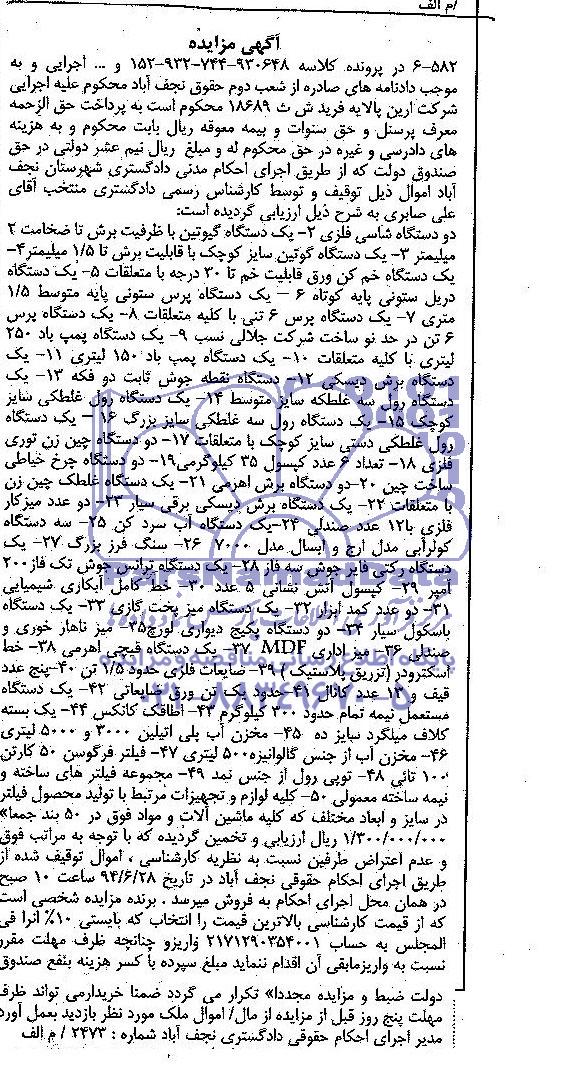 /م الف
آگهی مزایده
۶-۵۸۲ در پرونده کلاسه ۹۳۰۶۴۸-۷۴۴-۹۳۲-۱۵۲ و ... اجرایی و به
موجب دادنامه های صادره از شعب دوم حقوق نجف آباد محکوم علیه اجرایی
شرکت آرین پالایه فرید ش ث ۱۸۶۸۹ محکوم است به پرداخت حق الزحمه
معرف پرسنل و حق سنوات و بیمه معوقه ریال بابت محکوم و به هزینه
های دادرسی و غیره در حق محکوم له و مبلغ ریال نیم عشر دولتی در حق
صندوق دولت که از طریق اجرای احکام مدنی دادگستری شهرستان نجف
آباد اموال ذیل توقیف و توسط کارشناس رسمی دادگستری منتخب آقای
علی صابری به شرح ذیل ارزیابی گردیده است:
دو دستگاه شاسی فلزی ۲- یک دستگاه گیوتین با ظرفیت برش تا ضخامت ۲
میلیمتر ۳- یک دستگاه گوتین سایز کوچک با قابلیت برش تا ۱/۵ میلیمتر۴-
یک دستگاه خم کن ورق قابلیت خم تا ۳۰ درجه با متعلقات ۵- یک دستگاه
دریل ستونی پایه کوتاه ۶ – یک دستگاه پرس ستونی پایه متوسط ۱/۵
متری ۷- یک دستگاه پرس ۶ تنی با کلیه متعلقات ۸- یک دستگاه پرس
۶ تن در حد نو ساخت شرکت جلالی نسب ۹- یک دستگاه پمپ باد ۲۵۰
لیتری با کلیه متعلقات ۱۰- یک دستگاه پمپ باد ۱۵۰ لیتری ۱۱- یک
دستگاه برش دیسکی ۱۲- دستگاه نقطه جوش ثابت دو فکه ۱۳- یک
دستگاه رول سه غلطکه سایز متوسط ۱۴- یک دستگاه رول غلطکی سایز
کوچک ۱۵- یک دستگاه رول سه غلطکی سایز بزرگ ۱۶ – یک دستگاه
رول غلطکی دستی سایز کوچک با متعلقات ۱۷- دو دستگاه چین زن توری
فلزی ۱۸- تعداد ۶ عدد کپسول ۳۵ کیلوگرمی۱۹- دو دستگاه چرخ خیاطی
ساخت چین ۲۰-دو دستگاه برش اهرمی ۲۱- یک دستگاه غلطک چین زن
با متعلقات ۲۲- یک دستگاه برش دیسکی برقی سیار ۲۳- دو عدد میزکار
فلزی با۱۲ عدد صندلی ۲۴-یک دستگاه آب سرد کن ۲۵- سه دستگاه
کولرآبی مدل ارج و آبسال مدل ۷۰۰۰ ۲۶- سنگ فرز بزرگ ۲۷- یک
دستگاه رکتی فایر جوش سه فاز ۲۸- یک دستگاه ترانس جوش تک فاز۲۰۰
آمپر ۲۹- کپسول آتش نشانی ۵ عدد ۳۰- خط کامل آبکاری شیمیایی
۳۱- دو عدد کمد ابزار ۳۲- یک دستگاه میز پخت گازی ۳۳- یک دستگاه
باسکول سیار ۳۴- دو دستگاه پکیج دیواری لورچ۳۵- میز ناهار خوری و
صندلی ۳۶- میز اداری MDF ۳۷- یک دستگاه قیچی اهرمی ۳۸- خط
اسکترودر (تزریق پلاستیک) ۳۹- ضایعات فلزی حدود ۱/۵ تن ۴۰-پنج عدد
قیف و ۱۳ عدد کانال ۴۱-حدود یک تن ورق ضایعاتی ۴۲- یک دستگاه
مستعمل نیمه تمام حدود ۳۰۰ کیلوگرم ۴۳- اطاقک کانکس ۴۴- یک بسته
کلاف میلگرد سایز ده ۴۵- مخزن آب پلی اتیلین ۳۰۰۰ و ۵۰۰۰ لیتری
۴۶- مخزن آب از جنس گالوانیزه۵۰۰ لیتری ۴۷- فیلتر فرگوسن ۵۰ کارتن
۱۰۰ تائی ۴۸- توپی رول از جنس نمد ۴۹- مجموعه فیلتر های ساخته و
نیمه ساخته معمولی ۵۰- کلیه لوازم و تجهیزات مرتبط با تولید محصول فیلتر
در سایز و ابعاد مختلف که کلیه ماشین آلات و مواد فوق در ۵۰ بند جمعا»
۱/۳۰۰/۰۰۰/۰۰۰ ریال ارزیابی و تخمین گردیده که با توجه به مراتب فوق
و عدم اعتراض طرفین نسبت به نظریه کارشناسی ، اموال توقیف شده از
طریق اجرای احکام حقوقی نجف آباد در تاریخ ۹۴/۶/۲۸ ساعت ۱۰ صبح
در همان محل اجرای احکام به فروش میرسد . برنده مزایده شخصی است
که از قیمت کارشناسی بالاترین قیمت را انتخاب که بایستی ۱۰٪ آنرا فی
المجلس به حساب ۲۱۷۱۲۹۰۳۵۴۰۰۱ واریزو چنانچه ظرف مهلت مقرر
نسبت به واریزمابقی آن اقدام ننماید مبلغ سپرده با کسر هزینه بنفع صندوق
دولت ضبط و مزایده مجددا» تکرار می گردد ضمنا خریدارمی تواند ظرف
مهلت پنج روز قبل از مزایده از مال/ اموال ملک مورد نظر بازدید بعمل آورد
مدیر اجرای احکام حقوقی دادگستری نجف آباد شماره : ۲۴۷۳ / م الف
ParsNamadData
پایگاه اطلاع رسانی مناقصه و مزایده
۰۲۱-۸۸۳۴۹۶۷۰-۵